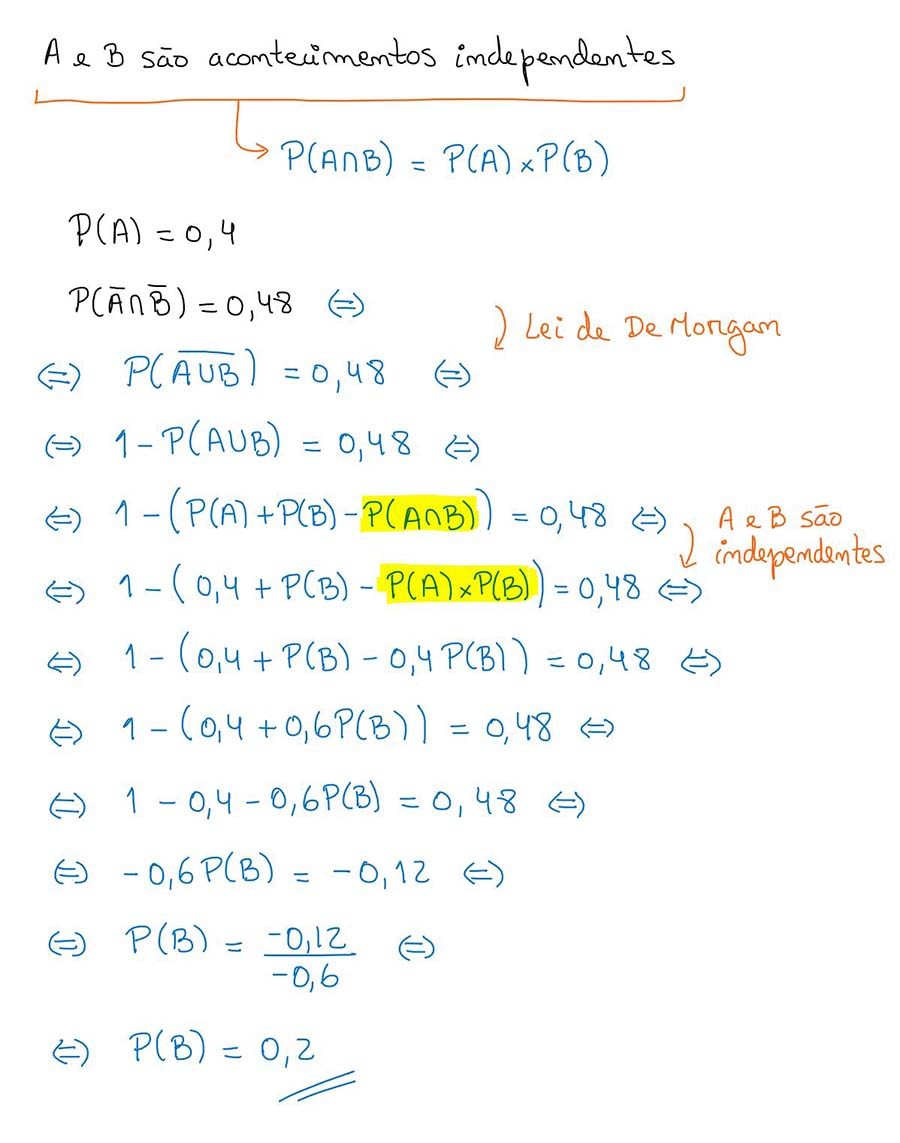 A e B são acontecimentos independentes
P(A∩B) = P(A)×P(B)
P(A) = 0,4
P(A̅∩B̅) = 0,48 ⇔
Lei de De Morgan
⇔ P(A̅∪̅B̅) = 0,48 ⇔
⇔ 1 - P(A∪B) = 0,48 ⇔
⇔ 1 - (P(A) + P(B) - P(A∩B)) = 0,48 ⇔
A e B são
independentes
⇔ 1 - (0,4 + P(B) - P(A)×P(B)) = 0,48 ⇔
⇔ 1 - (0,4 + P(B) - 0,4P(B)) = 0,48 ⇔
⇔ 1 - (0,4 + 0,6P(B)) = 0,48 ⇔
⇔ 1 - 0,4 - 0,6P(B) = 0,48 ⇔
⇔ -0,6P(B) = -0,12 ⇔
⇔ P(B) = -0,12/-0,6 ⇔
⇔ P(B) = 0,2